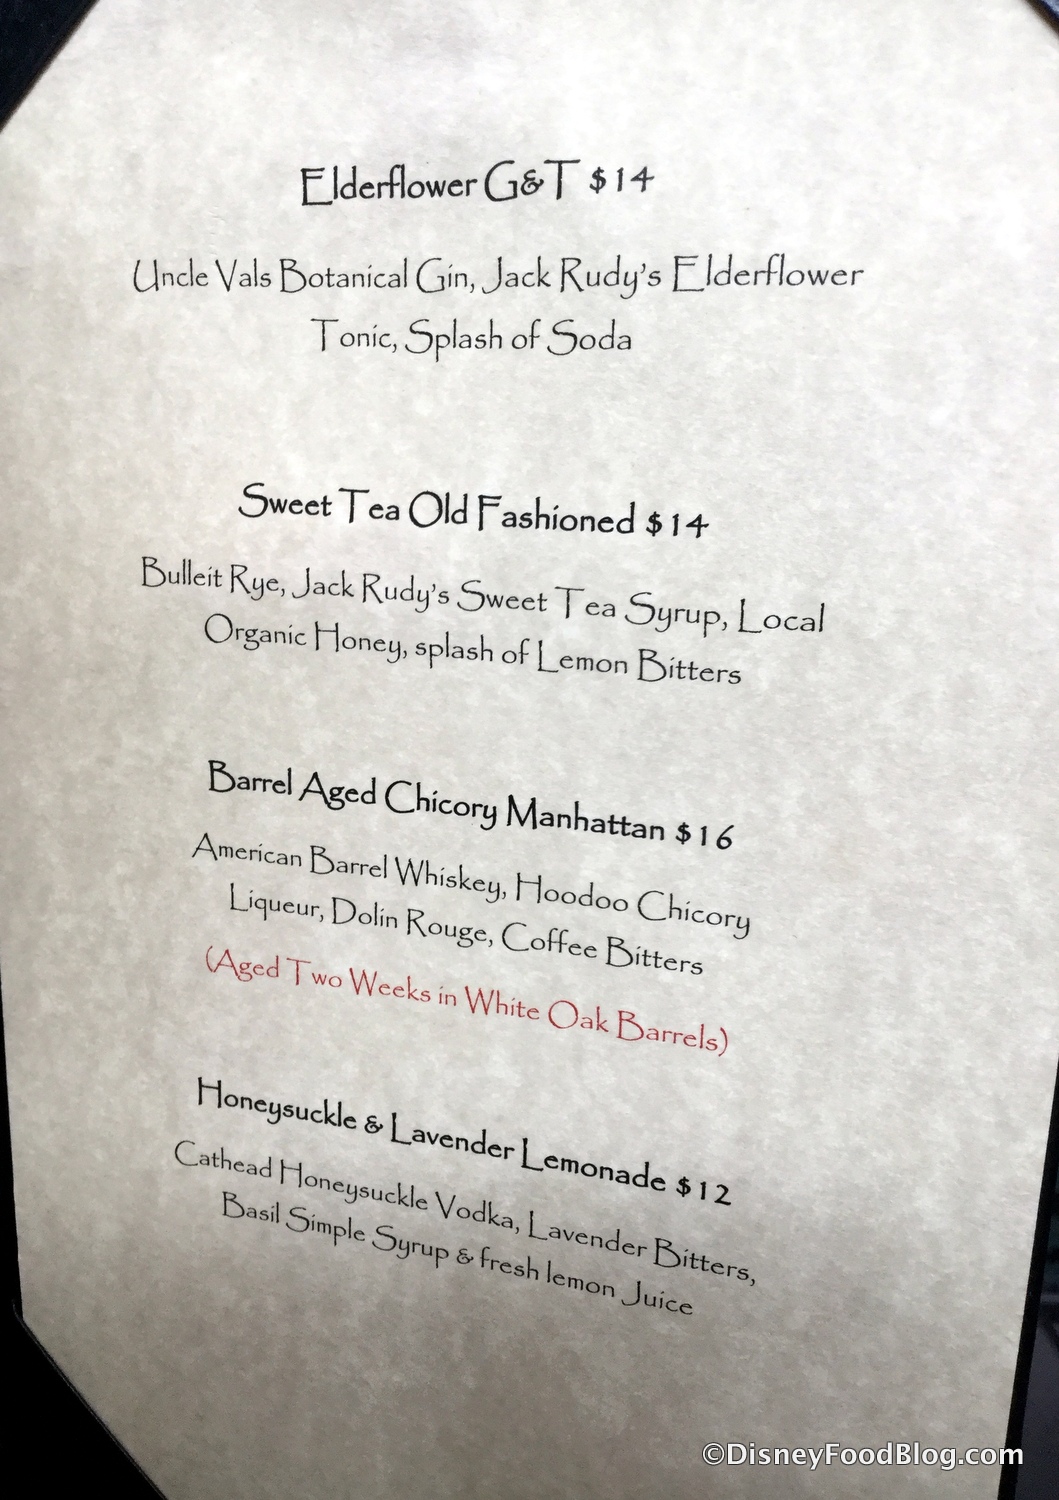 Elderflower G&T $14
Uncle Vals Botanical Gin, Jack Rudy's Elderflower
Tonic, Splash of Soda
Sweet Tea Old Fashioned $14
Bulleit Rye, Jack Rudy's Sweet Tea Syrup, Local
Organic Honey, splash of Lemon Bitters
Barrel Aged Chicory Manhattan $16
American Barrel Whiskey, Hoodoo Chicory
Liqueur, Dolin Rouge, Coffee Bitters
(Aged Two Weeks in White Oak Barrels)
Honeysuckle & Lavender Lemonade $12
Cathead Honeysuckle Vodka, Lavender Bitters,
Basil Simple Syrup & fresh lemon Juice
©DisneyFoodBlog.com